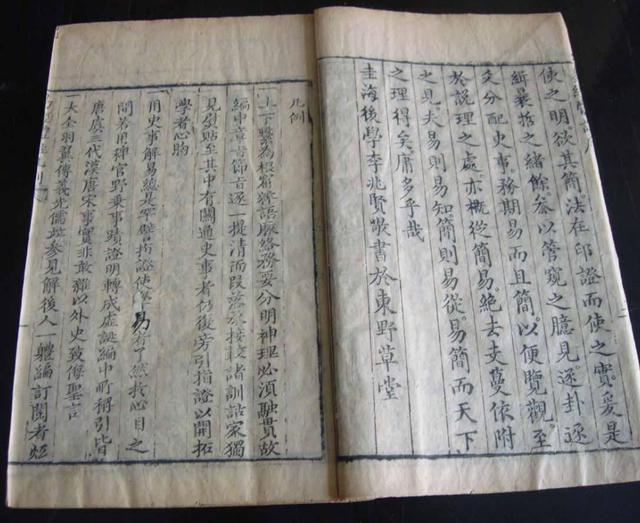 使之明欲其簡法在印證而使之實爰是
緝最括之緒餘參以管窺之臆見逐卦逐
爻分配史事務期易而且簡以便覽觀至
於說理之處亦概從簡易絕去支蔓依附
之見夫易則易知簡則易從易簡而天下
之理得矣庸多乎哉
圭海後學李兆賢敬書於東野草堂
凡例
一上下繫為根窟辭語脈絡務要分明神理必須融貫故
編中章旨節旨逐一提清而段落承接較諸訓詁家獨
見熨貼至其中有關通史事者仍復旁引指證以開拓
學者心胸
一用史事解易總是罕譬指證使學易者了然於心目之
間若用稗官野乘事蹟證明轉成虛誕編中所稱引皆
唐虞三代漢唐宋事實非敢雜以外史致侮聖言
一大全羽翼傳義先儒址參見解後人一體編訂閱者